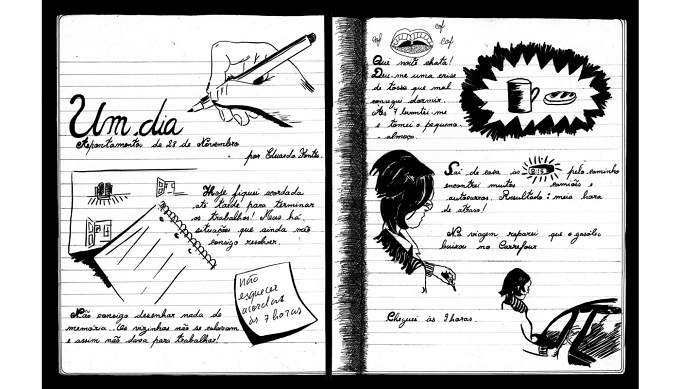 Um dia
Apontamento de 28 de Novembro
por Eduarda Fontes
Hoje fiquei acordada
até tarde para terminar
os trabalhos! Mas há
situações que ainda não
consigo resolver.
não
esquecer
acordar
às 7 horas
Não consigo desenhar nada de
memória... Os vizinhos não se calaram
e assim não dava para trabalhar!
cof
cof
cof
Que noite chata!
Deu-me uma crise
de tosse que mal
consegui dormir.
Às 7 levantei-me
e tomei o pequeno.
- almoço.
Saí de casa às 8:15 pelo caminho
encontrei muitos camiões e
autocarros. Resultado: meia hora
de atraso!
Na viagem reparei que o gasóleo
baixou no Carrefour
Cheguei às 9 horas.